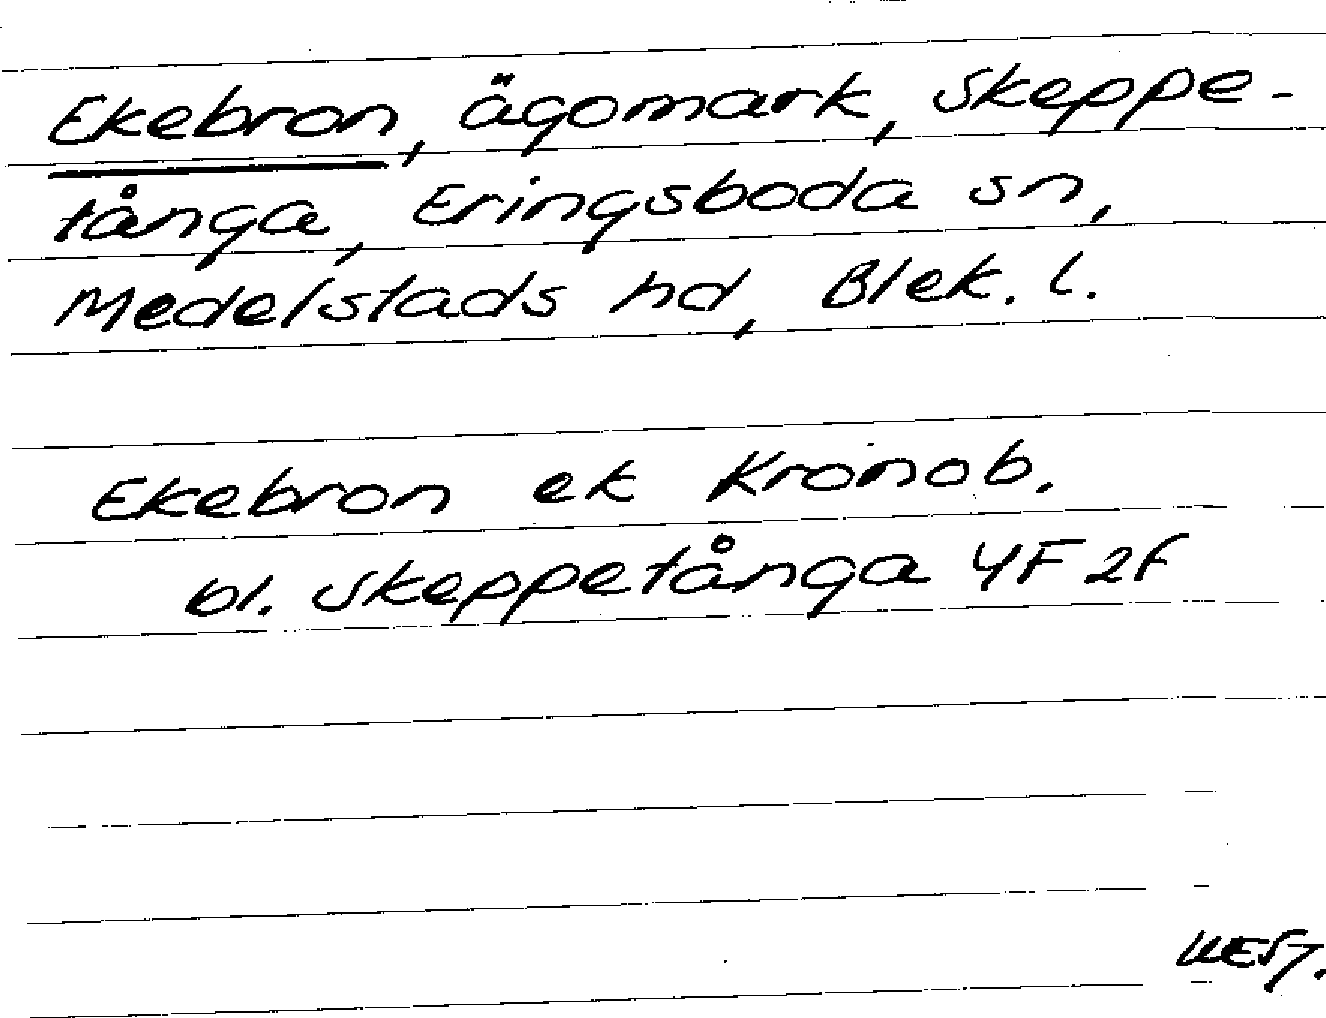 Ekebron, ägomark, Skeppe-
tånga, Eringsboda sn,
Medelstads hd, Blek. l.
Ekebron ek Kronob.
bl. Skeppetånga 4F 2f
WEST.